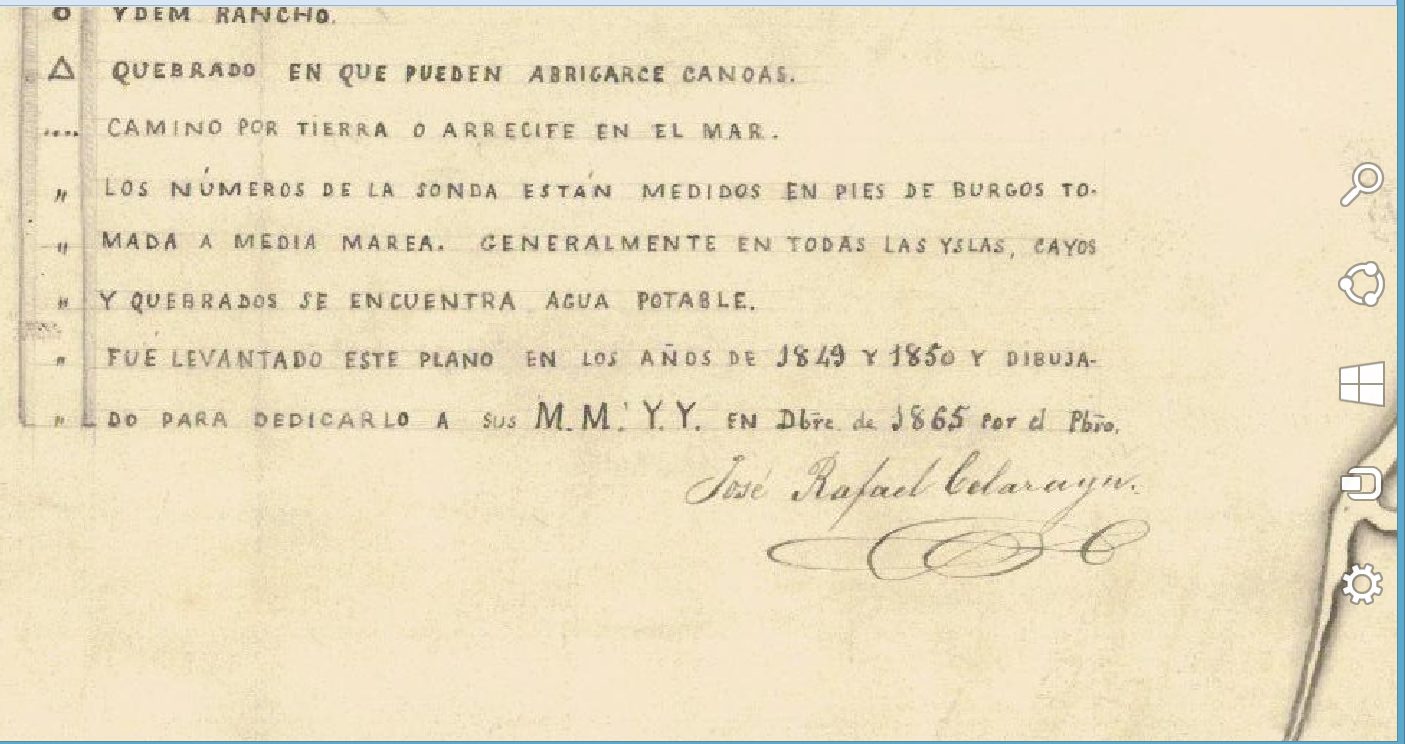 O YDEM RANCHO.
△ QUEBRADO EN QUE PUEDEN ABRIGARCE CANOAS.
.... CAMINO POR TIERRA O ARRECIFE EN EL MAR.
" LOS NÚMEROS DE LA SONDA ESTÁN MEDIDOS EN PIES DE BURGOS TO-
" MADA A MEDIA MAREA. GENERALMENTE EN TODAS LAS YSLAS, CAYOS
" Y QUEBRADOS SE ENCUENTRA AGUA POTABLE.
" FUÉ LEVANTADO ESTE PLANO EN LOS AÑOS DE 1849 Y 1850 Y DIBUJA-
" DO PARA DEDICARLO A SUS M.M. Y.Y. EN Dbre de 1865 Por el Pbro.
José Rafael